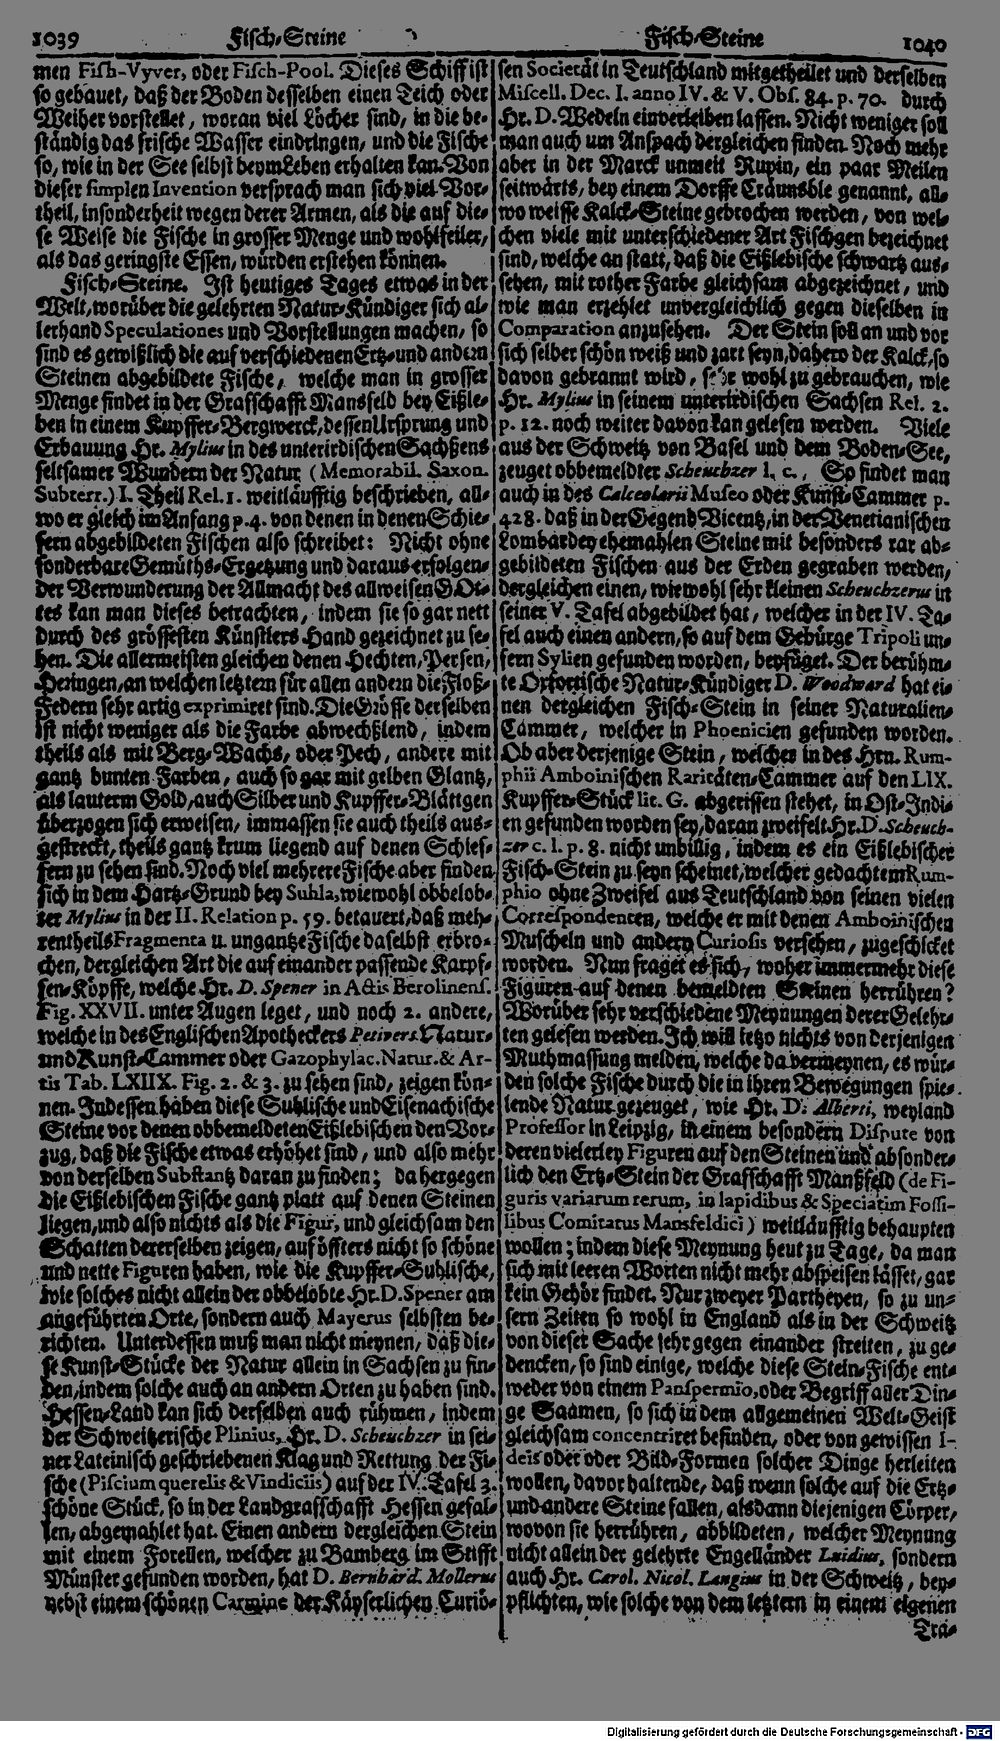 1039 Fisch-Steine
men Fish-Vyver, oder Fisch-Pool. Dieses Schiff ist
so gebauet, daß der Boden desselben einen Teich oder
Weiher vorstellet, woran viel Löcher sind, in die be-
ständig das frische Wasser eindringen, und die Fische
so, wie in der See selbst beym Leben erhalten kan. Von
dieser simplen Invention versprach man sich viel Vor-
theil, insonderheit wegen derer Armen, als die auf die-
se Weise die Fische in grosser Menge und wohlfeiler,
als das geringste Essen, würden erstehen können.
Fisch-Steine. Ist heutiges Tages etwas in der
Welt, worüber die gelehrten Natur-Kündiger sich al-
lerhand Speculationes und Vorstellungen machen, so
sind es gewißlich die auf verschiedenen Ertz- und andern
Steinen abgebildete Fische, welche man in grosser
Menge findet in der Grafschafft Mansfeld bey Eißle-
ben in einem Kupffer-Bergwerck, dessen Ursprung und
Erbauung Hr. Mylius in des unterirdischen Sachßens
seltsamer Wundern der Natur (Memorabil. Saxon.
Subterr.) I. Theil Rel. 1. weitläufftig beschrieben, all-
wo er gleich im Anfang p. 4. von denen in denen Schie-
fern abgebildeten Fischen also schreibet: Nicht ohne
sonderbare Gemüths-Ergetzung und daraus erfolgen-
der Verwunderung der Allmacht des allweisen GOt-
tes kan man dieses betrachten, indem sie so gar nett
durch des grössesten Künstlers Hand gezeichnet zu se-
hen. Die allermeisten gleichen denen Hechten, Persen,
Heringen, an welchen letztern für allen andern die Floß-
Federn sehr artig exprimiret sind. Die Grösse derselben
ist nicht weniger als die Farbe abwechßlend, indem
theils als mit Berg-Wachs, oder Pech, andere mit
gantz bunten Farben, auch so gar mit gelben Glantz,
als lauterm Gold, auch Silber und Kupffer-Blättgen
überzogen sich erweisen, immassen sie auch theils aus-
gestreckt, theils gantz krum liegend auf denen Schief-
fern zu sehen sind. Noch viel mehrere Fische aber finden
sich in dem Hartz-Grund bey Suhla, wiewohl obbelob-
ter Mylius in der II. Relation p. 59. betauert, daß meh-
rentheils Fragmenta u. ungantze Fische daselbst erbro-
chen, dergleichen Art die auf einander passende Karpf-
fen-Köpffe, welche Hr. D. Spener in Actis Berolinens.
Fig. XXVII. unter Augen leget, und noch 2. andere,
welche in des Englischen Apotheckers Petivers Natur-
und Kunst-Cammer oder Gazophylac. Natur. & Ar-
tis Tab. LXIIX. Fig. 2. & 3. zu sehen sind, zeigen kön-
nen. Indessen haben diese Suhlische und Eisenachische
Steine vor denen obbemeldeten Eißlebischen den Vor-
zug, daß die Fische etwas erhöhet sind, und also mehr
von derselben Substantz daran zu finden; da hergegen
die Eißlebischen Fische gantz platt auf denen Steinen
liegen, und also nichts als die Figur, und gleichsam den
Schatten dererselben zeigen, auf öffters nicht so schöne
und nette Figuren haben, wie die Kupffer-Suhlische,
wie solches nicht allein der obbelobte Hr. D. Spener am
angeführten Orte, sondern auch Mayerus selbsten be-
richten. Unterdessen muß man nicht meynen, daß die-
se Kunst-Stücke der Natur allein in Sachsen zu fin-
den, indem solche auch an andern Orten zu haben sind.
Hessen-Land kan sich derselben auch rühmen, indem
der Schweitzerische Plinius, Hr. D. Scheuchzer in sei-
ner Lateinisch geschriebenen Klag und Rettung der Fi-
sche (Piscium querelis & Vindiciis) auf der IV. Tafel 3.
schöne Stück, so in der Landgrafschafft Hessen gefal-
len, abgemahlet hat. Einen andern dergleichen Stein
mit einem Forellen, welcher zu Bamberg im Stifft
Münster gefunden worden, hat D. Bernhard. Mollerus
nebst einem schönen Carmine der Käyserlichen Curiö-
Fisch-Steine 1040
sen Societät in Teutschland mitgetheilet und derselben
Miscell. Dec. I. anno IV. & V. Obs. 84. p. 70. durch
Hr. D. Wedeln einverleiben lassen. Nicht weniger soll
man auch um Anspach dergleichen finden. Noch mehr
aber in der Marck unweit Rupin, ein paar Meilen
seitwärts, bey einem Dorffe Craunsble genannt, all-
wo weisse Kalck-Steine gebrochen werden, von wel-
chen viele mit unterschiedener Art Fischgen bezeichnet
sind, welche an statt, daß die Eißlebische schwartz aus-
sehen, mit rother Farbe gleichsam abgezeichnet, und
wie man erzehlet unvergleichlich gegen dieselben in
Comparation anzusehen. Der Stein soll an und vor
sich selber schön weiß und zart seyn, dahero der Kalck, so
davon gebrannt wird, sehr wohl zu gebrauchen, wie
Hr. Mylius in seinem unterirdischen Sachsen Rel. 2.
p. 12. noch weiter davon kan gelesen werden. Viele
aus der Schweitz von Basel und dem Boden-See,
zeuget obbemeldter Scheuchzer l. c. So findet man
auch in des Calceolarii Museo oder Kunst-Cammer p.
428. daß in der Gegend Vicentz, in der Venetianischen
Lombardey ehemahlen Steine mit besonders rar ab-
gebildeten Fischen aus der Erden gegraben werden,
dergleichen einen, wiewohl sehr kleinen Scheuchzerus in
seiner V. Tafel abgebildet hat, welcher in der IV. Ta-
fel auch einen andern, so auf dem Gebürge Tripoli un-
fern Sylien gefunden worden, beyfüget. Der berühm-
te Oxfortische Natur-Kündiger D. Woodward hat ei-
nen dergleichen Fisch-Stein in seiner Naturalien-
Cammer, welcher in Phoenicien gefunden worden.
Ob aber derjenige Stein, welcher in des Hrn. Rum-
phii Amboinischen Raritäten-Cammer auf den LIX.
Kupffer-Stück lit. G. abgerissen stehet, in Ost-Indi-
en gefunden worden sey, daran zweifelt Hr. D. Scheuch-
zer c. l. p. 8. nicht unbillig, indem es ein Eißlebischer
Fisch-Stein zu seyn scheinet, welcher gedachtem Rum-
phio ohne Zweifel aus Teutschland von seinen vielen
Correspondenten, welche er mit denen Amboinischen
Muscheln und andern Curiosis versehen, zugeschicket
worden. Nun fraget es sich, woher immermehr diese
Figuren auf denen bemeldten Steinen herrühren?
Worüber sehr verschiedene Meynungen derer Gelehr-
ten gelesen werden. Ich will ietzo nichts von derjenigen
Muthmassung melden, welche da vermeynen, es wür-
den solche Fische durch die in ihren Bewegungen spie-
lende Natur gezeuget, wie Hr. D. Alberti, weyland
Professor in Leipzig, in einem besondern Dispute von
deren vielerley Figuren auf den Steinen und absonder-
lich den Ertz-Stein der Grafschafft Manßfeld (de Fi-
guris variarum rerum, in lapidibus & Speciatim Fossi-
libus Comitatus Mansfeldici) weitläufftig behaupten
wollen; indem diese Meynung heut zu Tage, da man
sich mit leeren Worten nicht mehr abspeisen lässet, gar
kein Gehör findet. Nur zweyer Partheyen, so zu un-
sern Zeiten so wohl in England als in der Schweitz
von dieser Sache sehr gegen einander streiten, zu ge-
dencken, so sind einige, welche diese Stein-Fische ent-
weder von einem Panspermio, oder Begriff aller Din-
ge Saamen, so sich in dem allgemeinen Welt-Geist
gleichsam concentriret befinden, oder von gewissen I-
deis oder oder Bild-Formen solcher Dinge herleiten
wollen, davor haltende, daß wenn solche auf die Ertz-
und andere Steine fallen, alsdann diejenigen Cörper,
wovon sie herrühren, abbildeten, welcher Meynung
nicht allein der gelehrte Engelländer Luidius, sondern
auch Hr. Carol. Nicol. Langius in der Schweitz, bey-
pflichten, wie solche von dem letztern in einem eigenen
Tra-
Digitalisierung gefördert durch die Deutsche Forschungsgemeinschaft - DFG